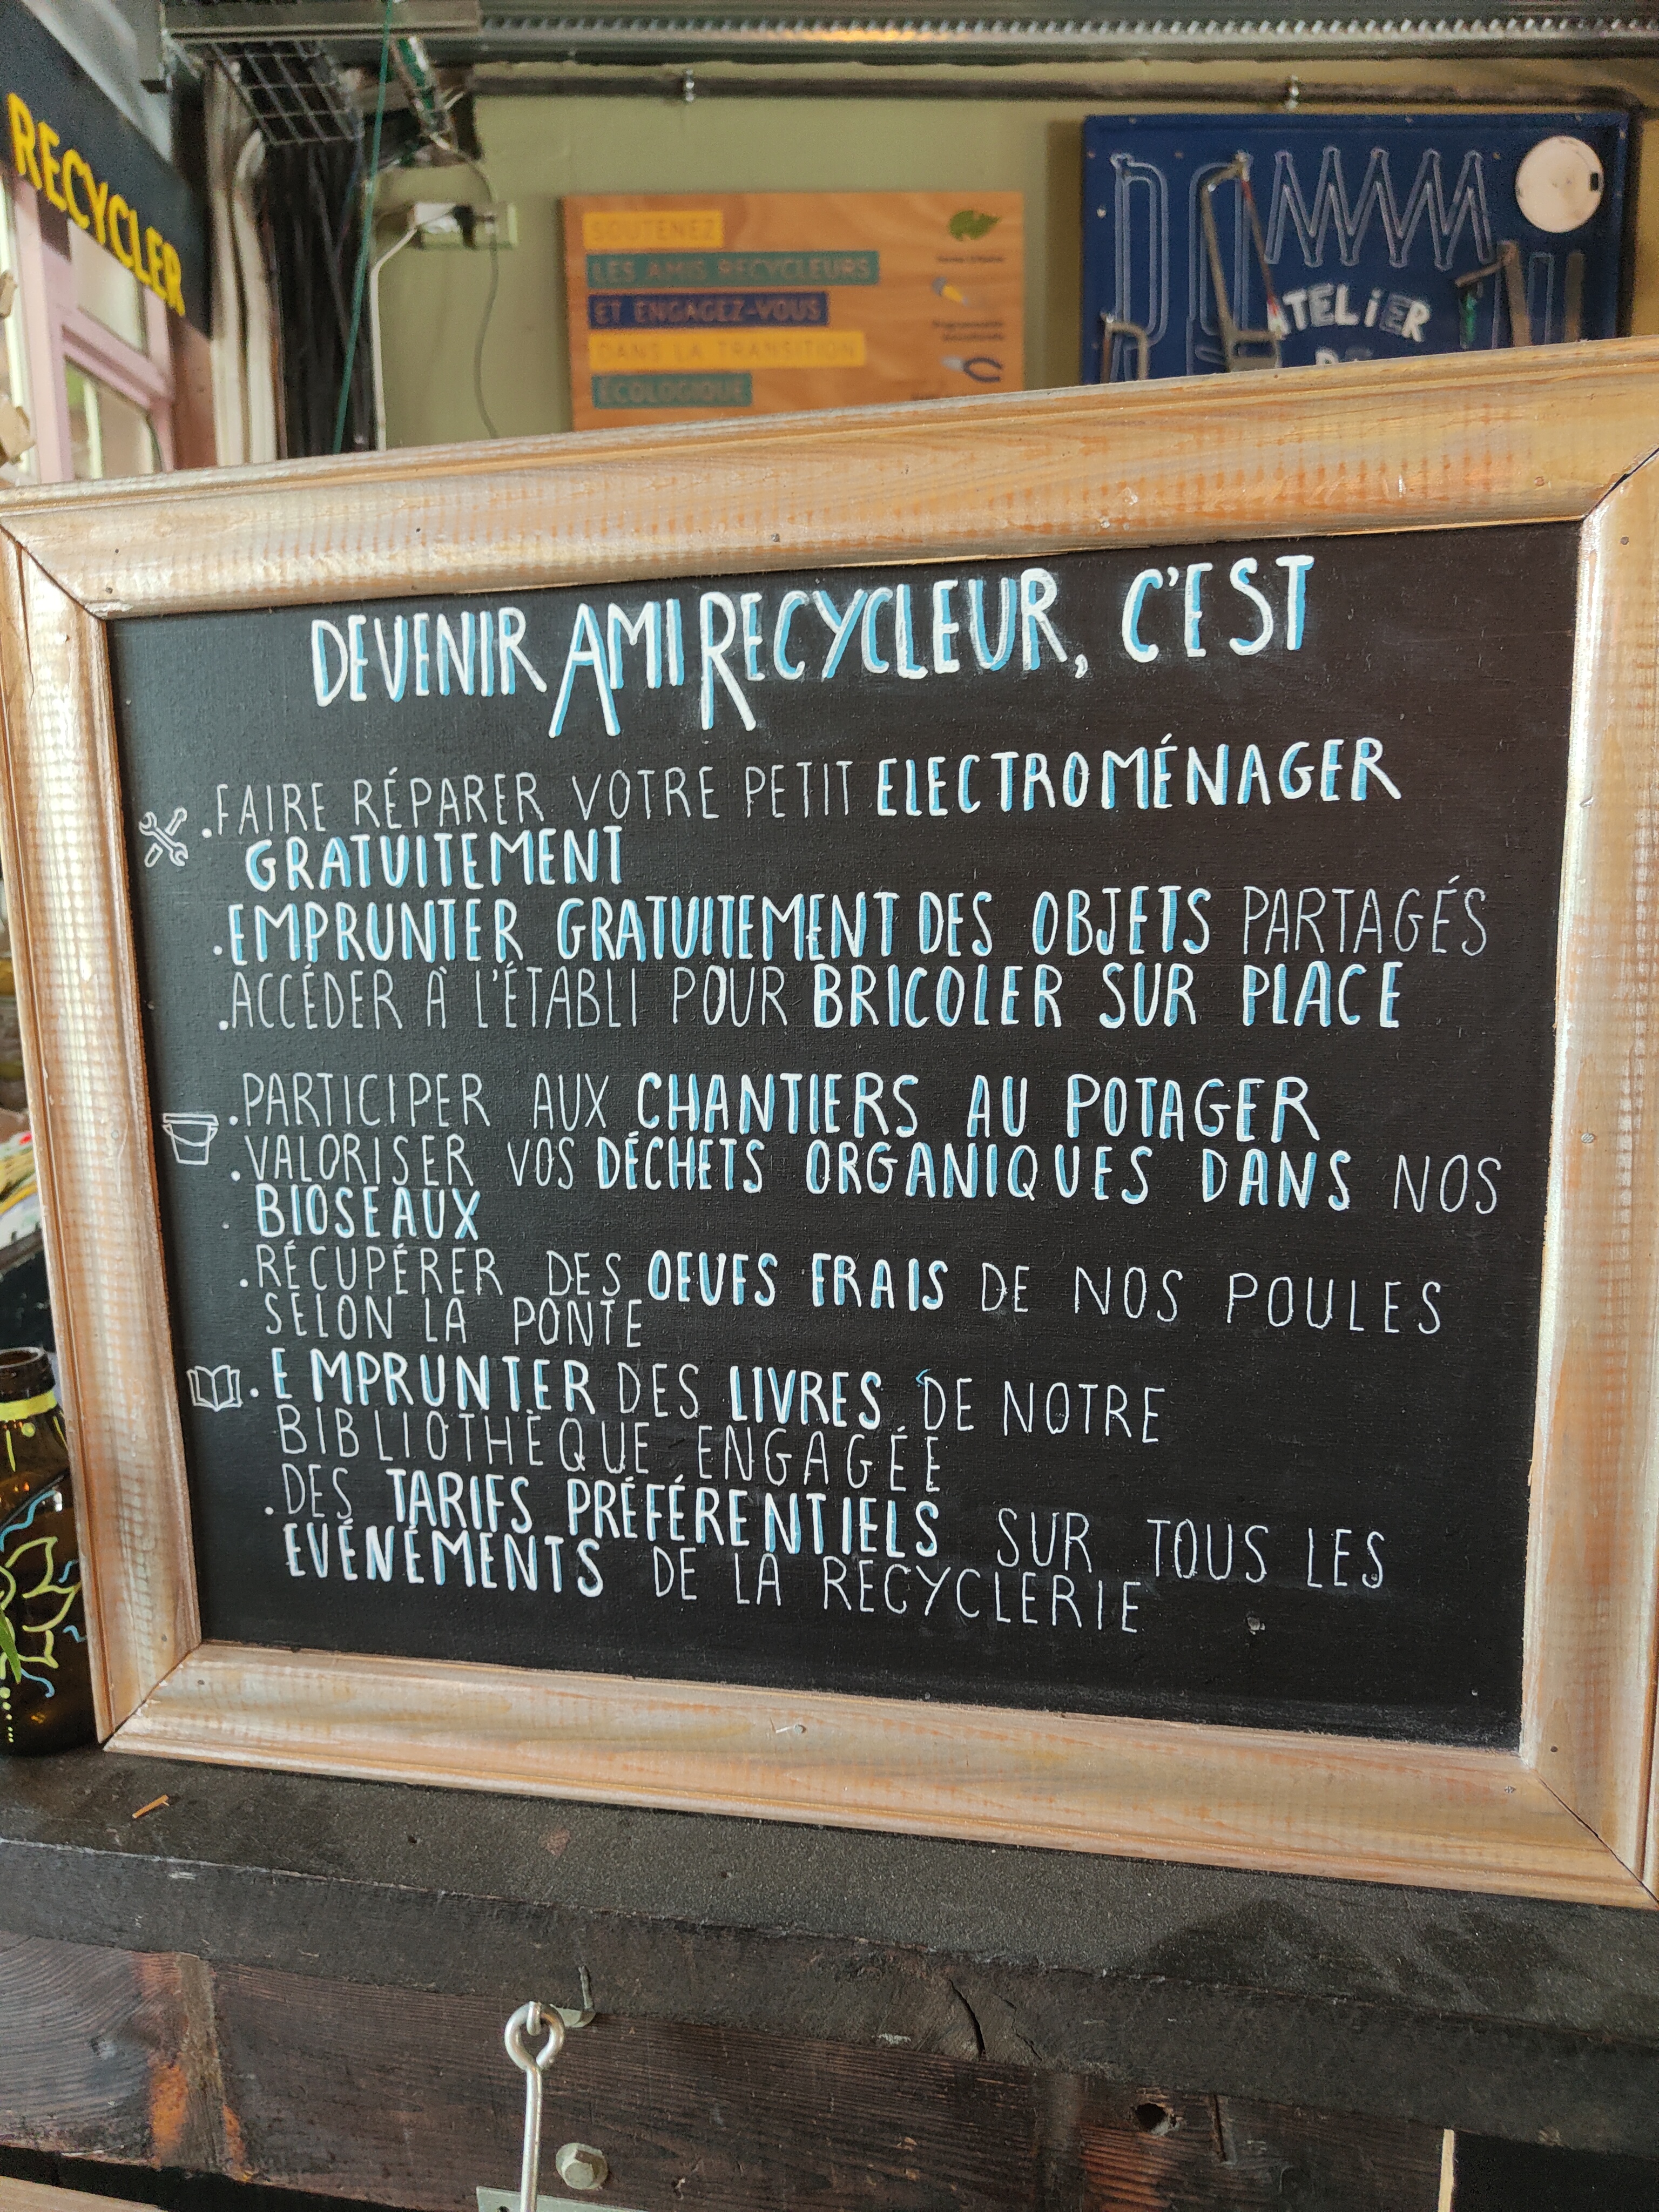 RECYCLER
SOUTENEZ
LES AMIS RECYCLEURS
ET ENGAGEZ-VOUS
DANS LA TRANSITION
ÉCOLOGIQUE
ATELIER
DEVENIR AMI RECYCLEUR, C'EST
.FAIRE RÉPARER VOTRE PETIT ELECTROMÉNAGER
GRATUITEMENT
.EMPRUNTER GRATUITEMENT DES OBJETS PARTAGÉS
.ACCÉDER À L'ÉTABLI POUR BRICOLER SUR PLACE
.PARTICIPER AUX CHANTIERS AU POTAGER
.VALORISER VOS DÉCHETS ORGANIQUES DANS NOS
BIOSEAUX
.RÉCUPÉRER DES OEUFS FRAIS DE NOS POULES
SELON LA PONTE
.EMPRUNTER DES LIVRES DE NOTRE
BIBLIOTHÈQUE ENGAGÉE
.DES TARIFS PRÉFÉRENTIELS SUR TOUS LES
EVÉNÉMENTS DE LA RECYCLERIE